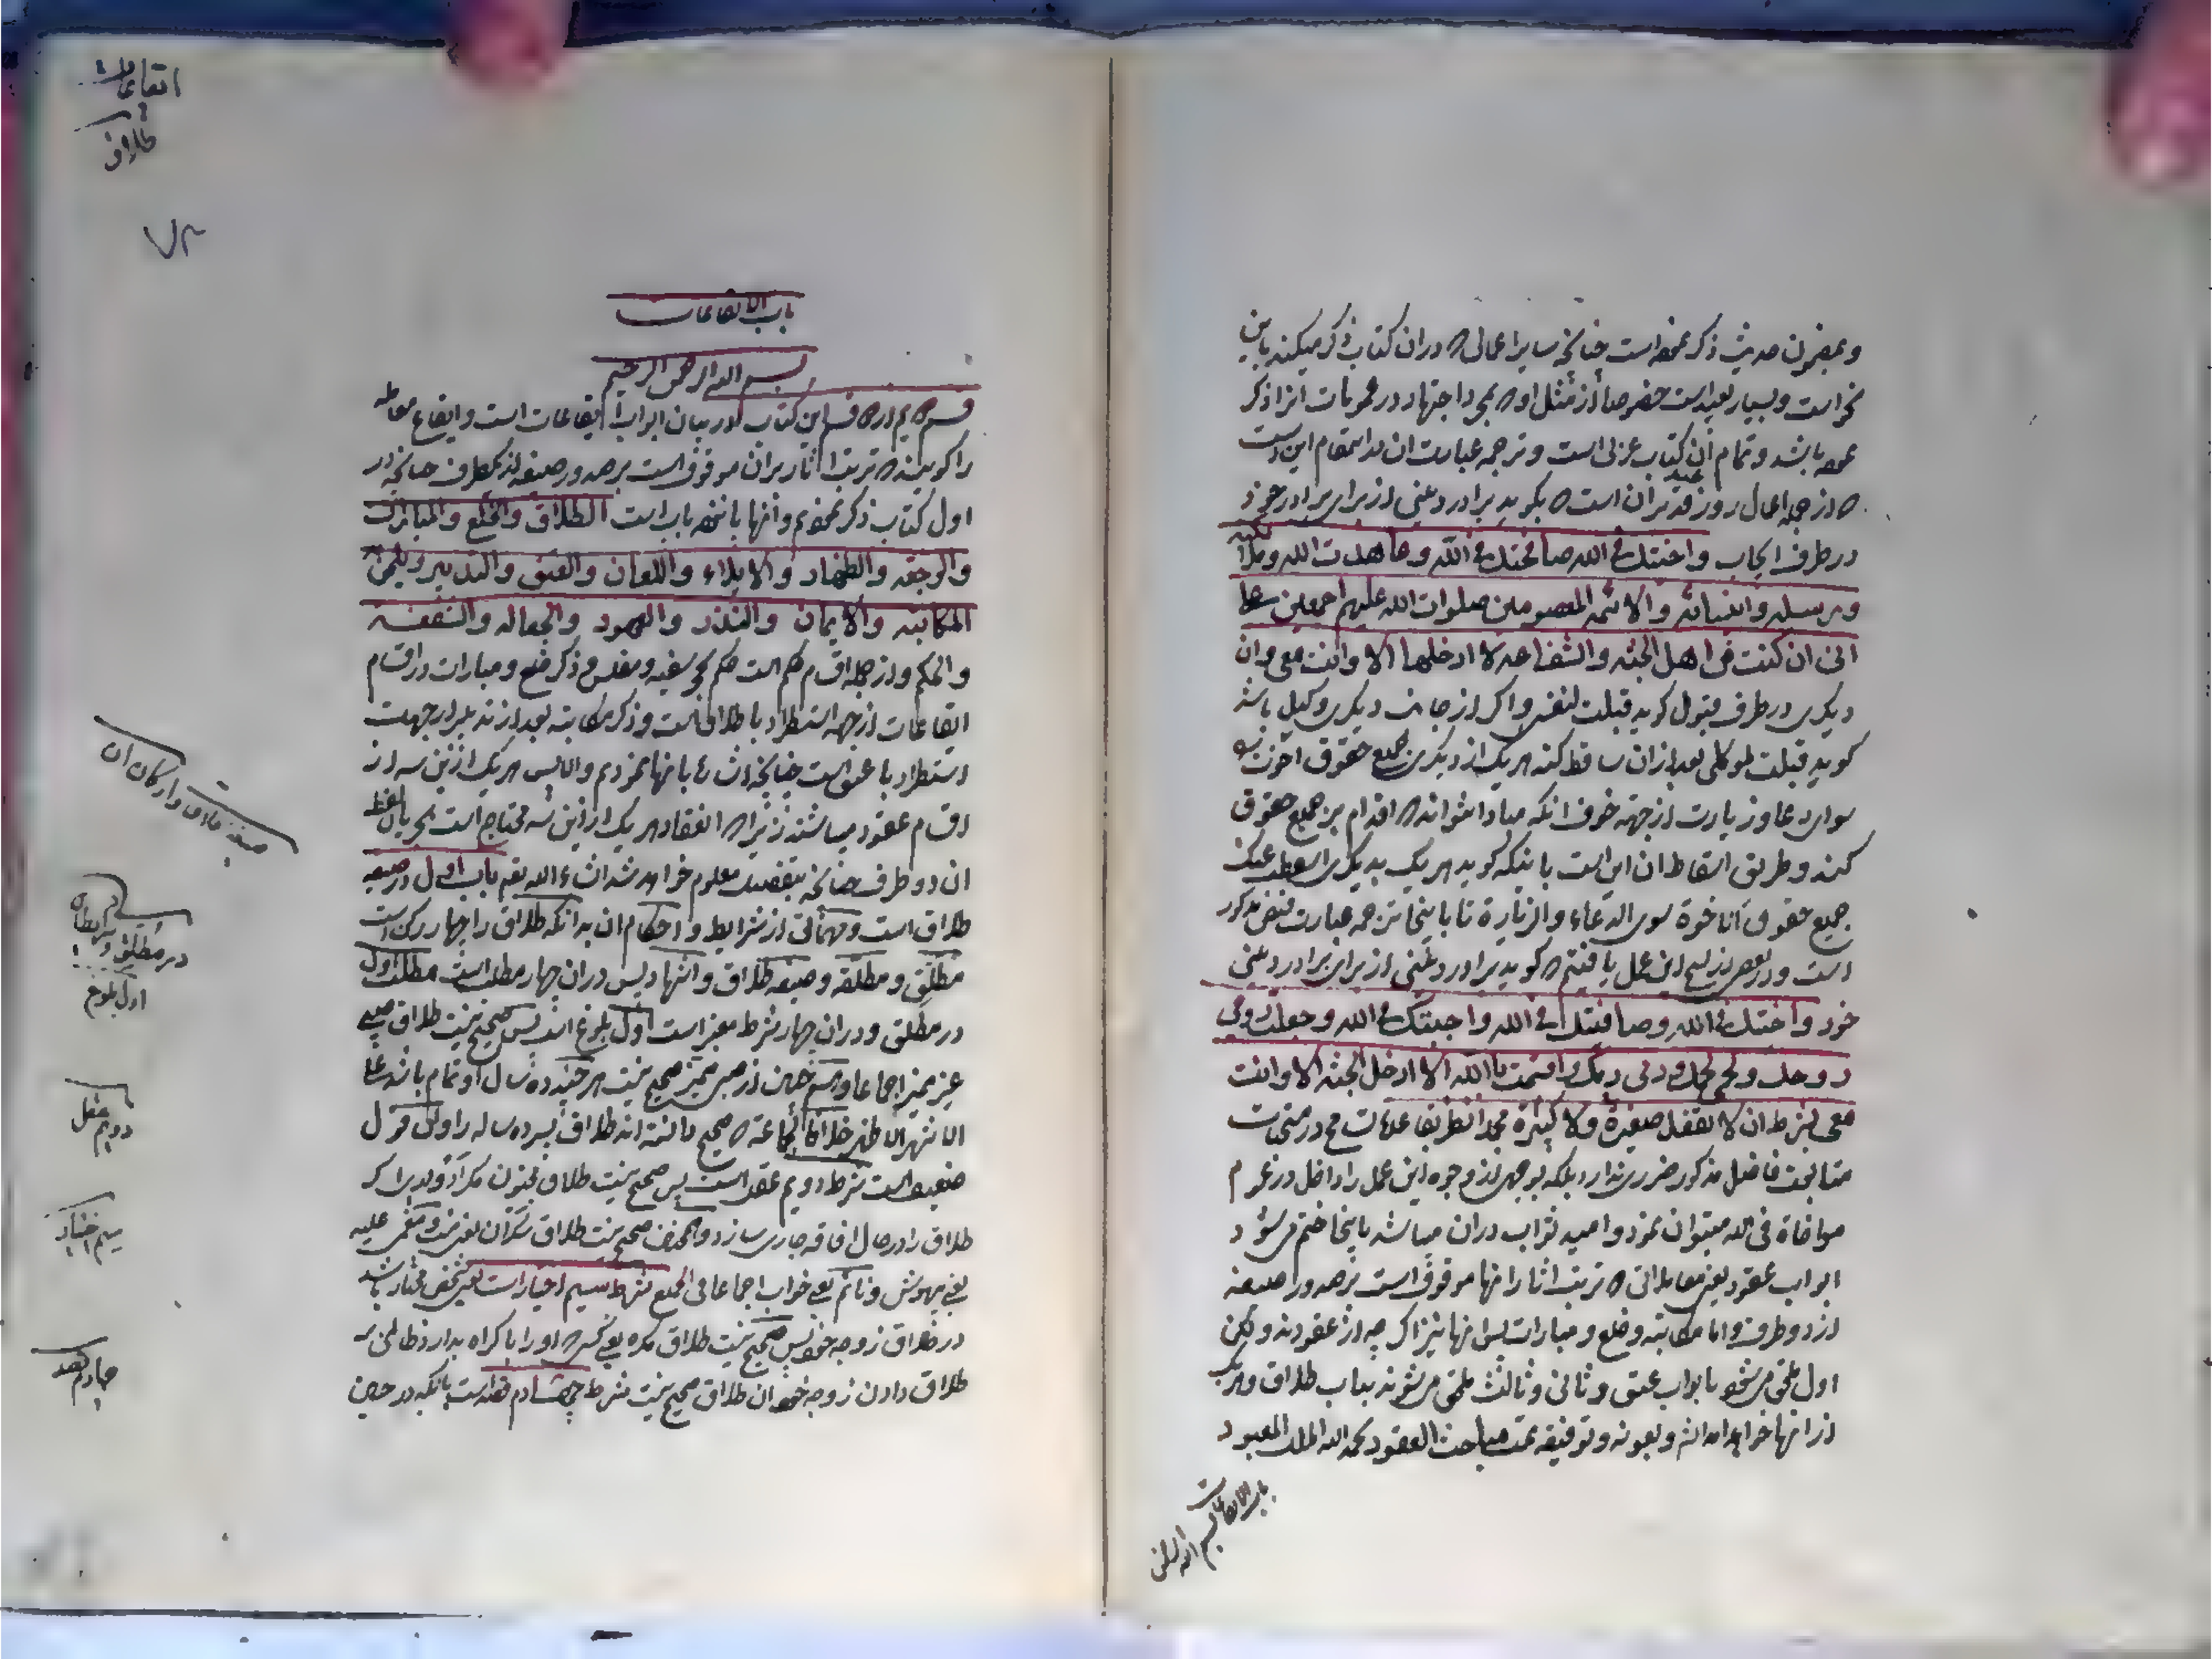 و بمضمون حدیث ذکر نموده است چنانچه سایر اعمالی که در آن کتاب ذکر میکند باین
نحو است و بسیار بعید است خصوصا از مثل او که بمجرد اجتهاد در عمومات آنرا ذکر
نموده باشد و تمام آن کتاب عربی است و ترجمه عبارت آن در اینمقام این است
که از جمله اعمال روز عید غدیر آن است که بگوید برادر دینی از برای برادر خود
در طرف ایجاب واخیتک فی الله صافحتک فی الله وعاهدت الله وملائکته
ورسله وانبیائه والائمة المعصومین صلوات الله علیهم اجمعین علی
انی ان کنت من اهل الجنه والشفاعه لا ادخلها الا وانت معی و آن
دیگری در طرف قبول گوید قبلت لنفسی و اگر از جانب دیگری وکیل باشد
گوید قبلت لموکلی بعد از آن ساقط کند هر یک از دیگری جمیع حقوق اخوت
سوای دعا و زیارت از جهة خوف آنکه مبادا نتوانند که اقدام بر جمیع حقوق
کنند و طریق اسقاط آن این است باینکه گوید هر یک بدیگری اسقطت عنک
جمیع حقوق الاخوة سوی الدعاء والزیارة تا باینجا ترجمه عبارت فیض مذکور
است و در بعضی از نسخ این عمل یافتیم که گوید برادر دینی از برای برادر دینی
خود واخیتک فی الله وصافیتک فی الله واجبتک فی الله وجعلت روحی
روحک ولحمی لحمک ودمی دمک واقسمت بالله الا ادخل الجنه الا وانت
معی بشرط ان لا تغفل صغیرة ولا کبیرة
متابعت فاضل مذکور ضرری ندارد بلکه بوجهی از وجوه این عمل را داخل در عموم
مواخاة فی الله میتوان نمود و امید ثواب در آن میباشد باینجا ختم می شود
ابواب عقود یعنی معاملاتی که ترتب آثار آنها موقوف است بر صدور صیغه
از دو طرف و اما مکاتبه و خلع و مبارات پس آنها نیز اگر چه از عقودند ولکن
اول ملحق می شود بابواب عتق و ثانی و ثالث ملحق می شوند بباب طلاق و هر یک
از آنها خواهد آمد انشاء و بعونه و توفیقه تمت مباحث العقود بحمد الله الملک المعبود
باب الایقاعات
بسم الله الرحمن
ایقاعات
طلاق
۷۲
باب الایقاعات
بسم الله الرحمن الرحیم
قسم دویم از دو قسم این کتاب در بیان ابواب ایقاعات است و ایقاع معامله
را گویند که ترتب آثار بر آن موقوف است بر صدور صیغه از یکطرف چنانچه در
اول کتاب ذکر نمودیم و آنها پانزده باب است الطلاق والخلع والمبارات
والرجعه والظهار والایلاء واللعان والعتق والتدبیر
المکاتبه والایمان والنذر والعهود والجعاله والشفعه
والحکم و از جمله اقسام حکم است حکم بحجر سفیه و مفلس و ذکر خلع و مبارات در اقسام
ایقاعات از جهة استطراد با طلاق است و ذکر مکاتبه بعد از تدبیر از جهت
استطراد با عتق است چنانچه اشاره بانها نمودیم والا پس هر یک از این سه از
اقسام عقود میباشند زیرا که انعقاد هر یک از این سه محتاج است
آن دو طرف چنانچه بتفصیل معلوم خواهد شد انشاء الله تعم باب اول در صیغه
طلاق است و جهاتی از شرایط و احکام آن بدانکه طلاق را چهار رکن است
مطلق و مطلقه و صیغه طلاق و اشهاد پس در آن چهار مطلب است مطلب اول
در مطلق و در آن چهار شرط معتبر است اول بلوغ است پس صحیح نیست طلاق صبی
غیر ممیز اجماعا و همچنین از صبی ممیز صحیح نیست هر چند ده سال او تمام باشد علی
الاشهر الاظهر خلافا لجماعة که صحیح دانسته اند طلاق پسر ده ساله را و این قول
ضعیف است شرط دویم عقل است پس صحیح نیست طلاق مجنون مگر ادواری که
طلاق را در حال افاقه جاری سازد و همچنین صحیح نیست طلاق سکران یعنی مست و مغمی علیه
یعنی بیهوش و نائم یعنی خواب اجماعا فی الجمیع شرط سیم اختیار است یعنی شخص مختار باشد
در طلاق زوجه خود پس صحیح نیست طلاق مکره یعنی کسی که او را باکراه بدارد ظالمی به
طلاق دادن زوجه خود آن طلاق صحیح نیست شرط چهارم قصد است بانکه در حین
صیغه طلاق و ارکان آن
در مطلق و شرایط آن
اول بلوغ
دویم عقل
سیم اختیار
چهارم قصد